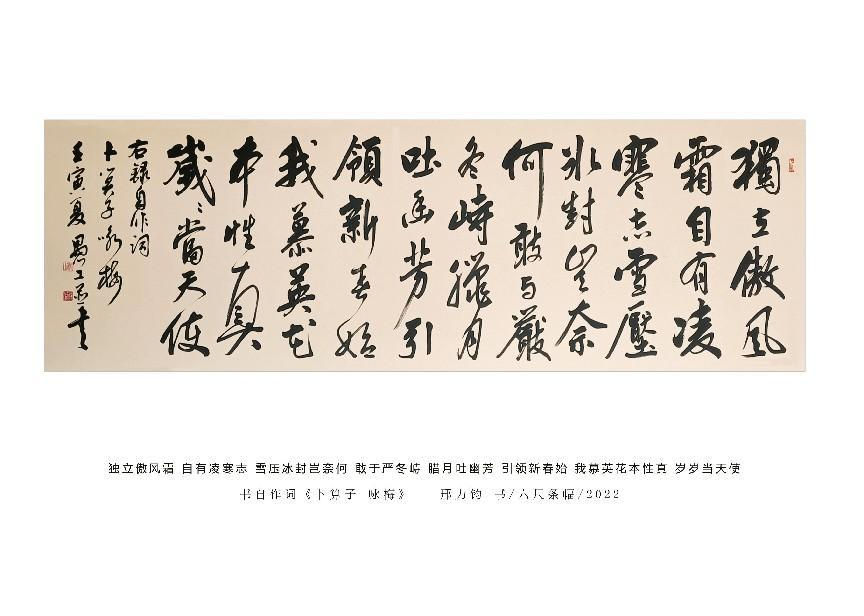 獨立傲風
霜自有凌
寒志雪壓
冰封豈奈
何敢与嚴
冬峙臘月
吐幽芳引
領新春始
我慕英花
本性真
歲〻當天使
右録自作詞
卜算子咏梅
壬寅夏
独立傲风霜 自有凌寒志 雪压冰封岂奈何 敢于严冬峙 腊月吐幽芳 引领新春始 我慕英花本性真 岁岁当天使
书自作词《卜算子 咏梅》 邢力钧 书/六尺条幅/2022